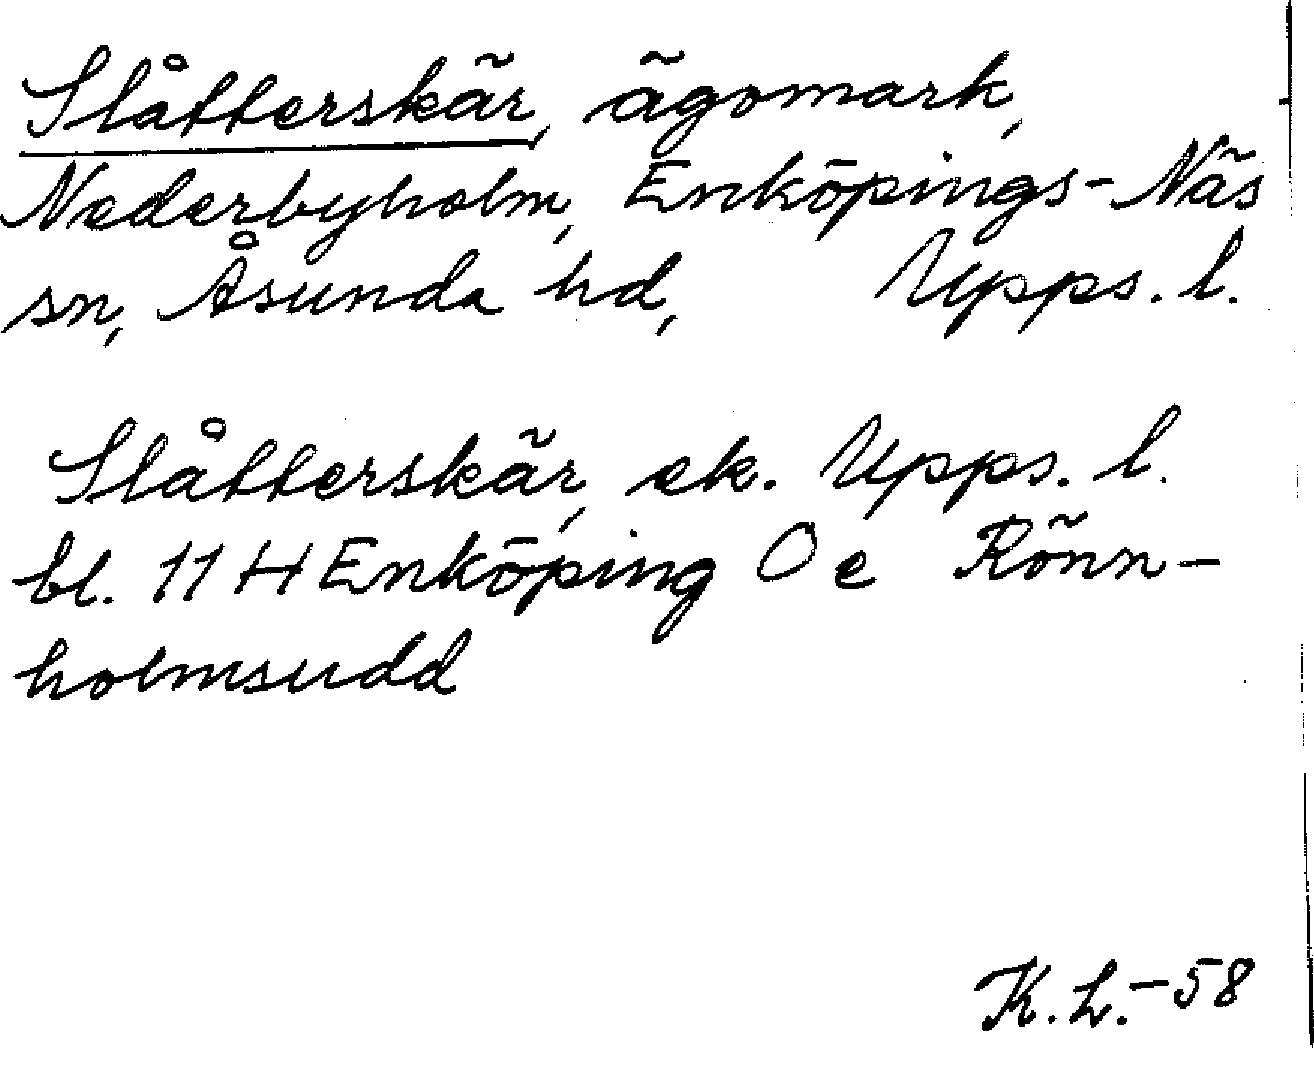 Slåtterskär, ägomark,
Nederbyholm, Enköpings-Näs
sn, Åsunda hd, Upps. l.
Slåtterskär, ek. Upps. l.
bl. 11 H Enköping O e Rönn-
holmsudd
K. L. -58